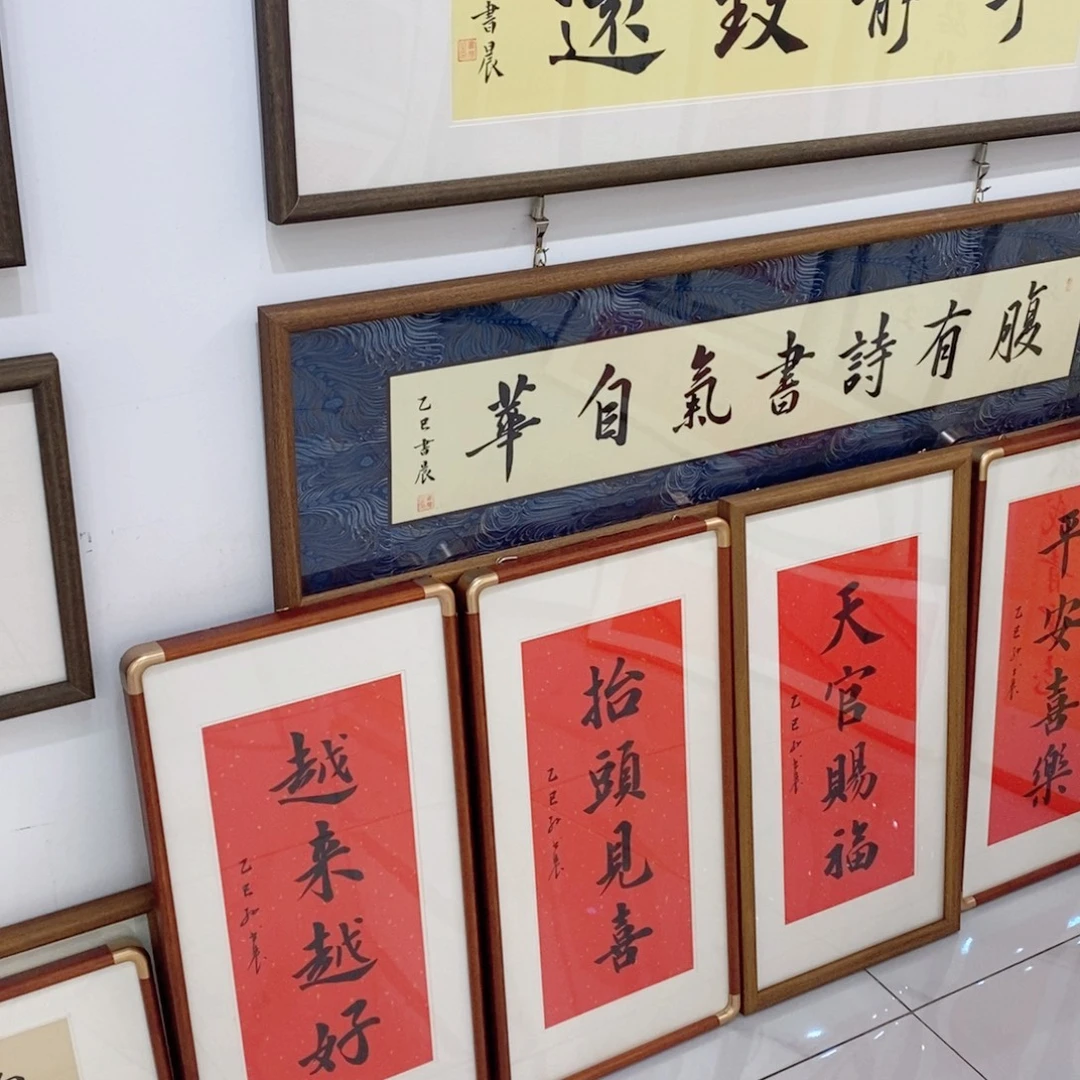 寧靜致遠
書晨
腹有詩書氣自華
乙巳書晨
越来越好
乙巳
抬頭見喜
乙巳
天官賜福
乙巳
平安喜樂
乙巳